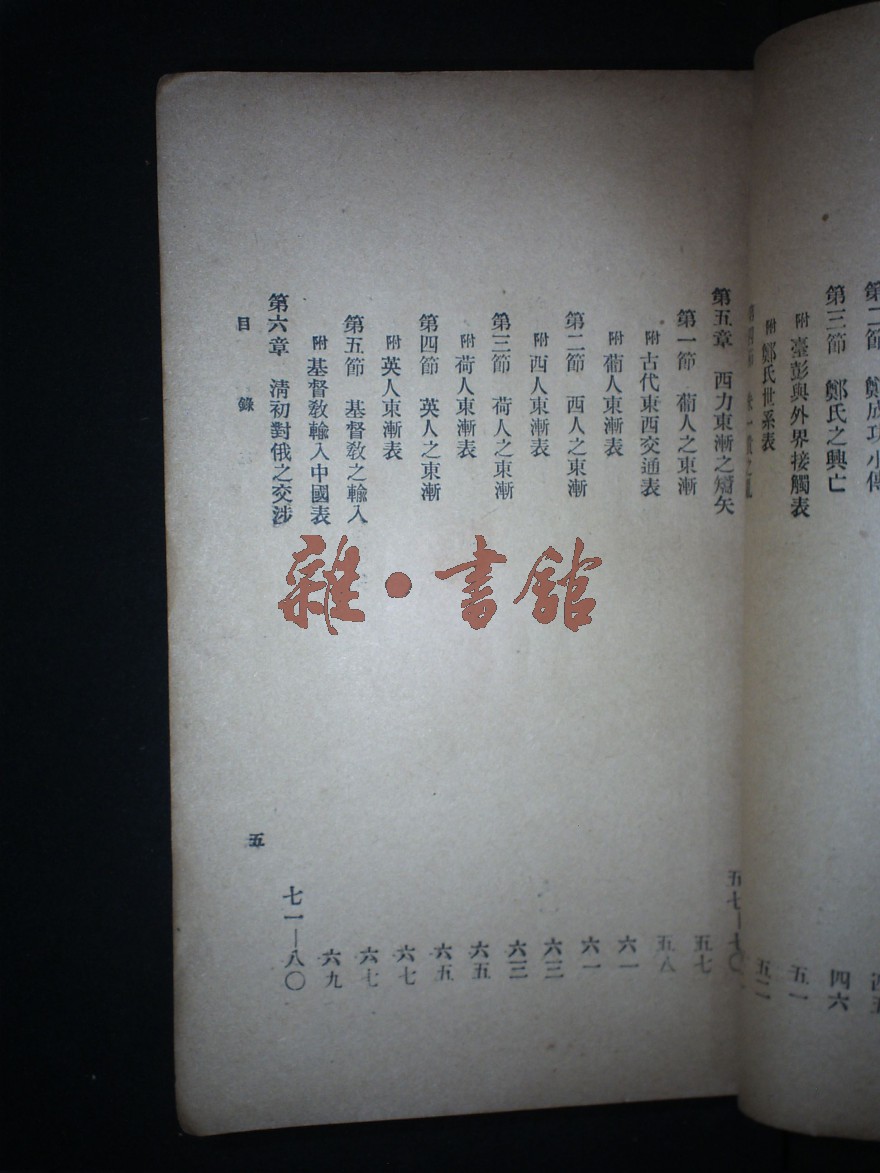 第三節 鄭氏之興亡 四六
附 臺彭與外界接觸表 五一
附 鄭氏世系表 五二
第五章 西力東漸之嚆矢 五七—七〇
第一節 葡人之東漸 五七
附 古代東西交通表 五八
附 葡人東漸表 六一
第二節 西人之東漸 六一
附 西人東漸表 六三
第三節 荷人之東漸 六三
附 荷人東漸表 六五
第四節 英人之東漸 六五
附 英人東漸表 六七
第五節 基督教之輸入 六七
附 基督教輸入中國表 六九
第六章 清初對俄之交涉 七一—八〇
目錄 五
雜·書館